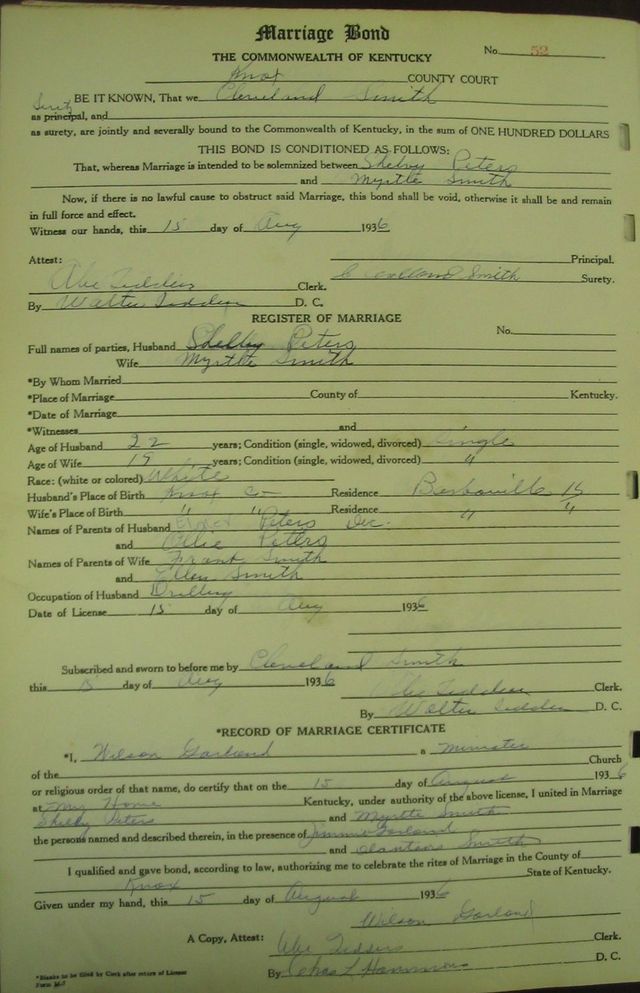 Marriage Bond
THE COMMONWEALTH OF KENTUCKY
No. 52
Knox COUNTY COURT
BE IT KNOWN, That we Cleveland Smith
as principal, and
as surety, are jointly and severally bound to the Commonwealth of Kentucky, in the sum of ONE HUNDRED DOLLARS
THIS BOND IS CONDITIONED AS FOLLOWS:
That, whereas Marriage is intended to be solemnized between Shelby Peters
and Myrtle Smith
Now, if there is no lawful cause to obstruct said Marriage, this bond shall be void, otherwise it shall be and remain
in full force and effect.
Witness our hands, this 15 day of Aug 1936
Attest: Principal.
Cleveland Smith Surety.
Abe Tedders Clerk.
By Walter Tedders D. C.
REGISTER OF MARRIAGE
No.
Full names of parties, Husband Shelby Peters
Wife Myrtle Smith
*By Whom Married
*Place of Marriage County of Kentucky.
*Date of Marriage
*Witnesses and
Age of Husband 22 years; Condition (single, widowed, divorced) Single
Age of Wife 19 years; Condition (single, widowed, divorced) "
Race: (white or colored) White
Husband's Place of Birth Knox Co Residence Barbourville
Wife's Place of Birth " " Residence " "
Names of Parents of Husband Peters Dec.
and Ollie Peters
Names of Parents of Wife Frank Smith
and Ellen Smith
Occupation of Husband Drilling
Date of License 15 day of Aug 1936
Subscribed and sworn to before me by Cleveland Smith
this 15 day of Aug 1936 Abe Tedders Clerk.
By Walter Tedders D. C.
*RECORD OF MARRIAGE CERTIFICATE
*I, Wilson Garland a Minister
of the Church
or religious order of that name, do certify that on the 15 day of August 1936
at My Home Kentucky, under authority of the above license, I united in Marriage
Shelby Peters and Myrtle Smith
the persons named and described therein, in the presence of Jimmie Garland
and Smith
I qualified and gave bond, according to law, authorizing me to celebrate the rites of Marriage in the County of
Knox State of Kentucky.
Given under my hand, this 15 day of August 1936
Wilson Garland
A Copy, Attest: Abe Tedders Clerk.
By Chas L Hammons D. C.
*Blanks to be filed by Clerk after return of License